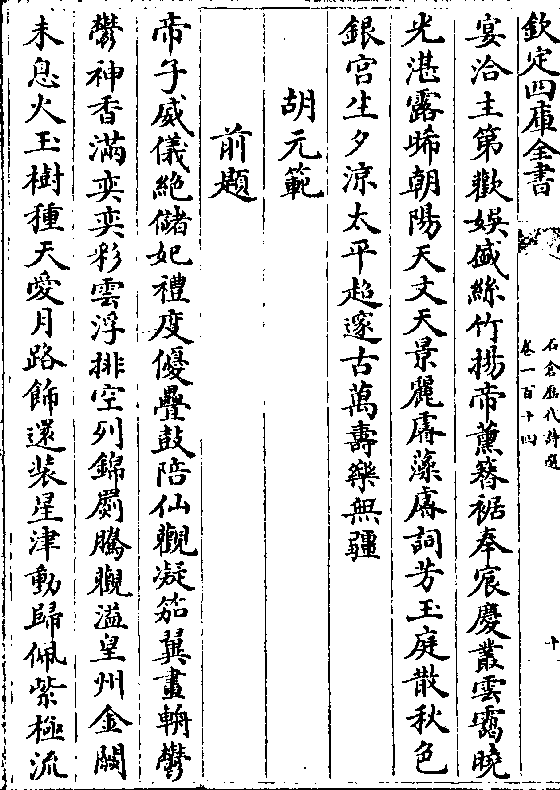 欽定四庫全書
石倉歷代詩選
卷一百十四
十
宴洽主第歡娛盛絲竹揚帝薰簪裾奉宸慶叢雲靄曉
光湛露晞朝陽天文天景麗睿藻睿詞芳玉庭散秋色
銀宮生夕涼太平超邃古萬壽樂無疆
胡元範
前題
帝子威儀絶儲妃禮度優疊鼓陪仙觀凝笳翼畫輈鬱
鬱神香滿奕奕彩雲浮排空列錦罽騰觀溢皇州金闕
未息火玉樹種天愛月路飾還裝星津動歸佩紫極流